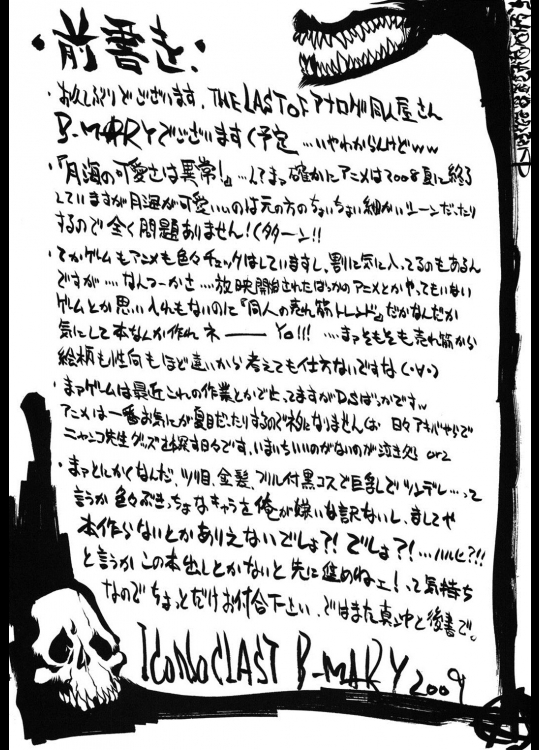 ・前書き・
・お久しぶりでございます、THE LAST OF アナログ同人屋さん
B-MARYでございます(予定…いやわからんけどww
・『月海の可愛さは異常!』…してまぁ確かにアニメは2008夏に終了
していますが月海が可愛いいのは元の方のちょいちょい細かいシーンだったり
するので全く問題ありません!(タターン!!
・てかゲームもアニメも色々チェックはしていますし、割に気に入ってるのもあるん
ですが…なんつーかさ…放映開始されたばっかのアニメとかやってもいない
ゲームとか思い入れもないのに『同人の売れ筋トレンド』だかなんだか
気にして本なんか作れネ――Yo!!!…まぁそもそも売れ筋から
絵柄も性向もほど遠いから考えても仕方ないですな(・∀・)
・まぁゲームは最近これの作業とかで止ってますがDSばっかですw
アニメは一番お気にが夏目だったりするのでネタになりませんしネ 日々アキバやらで
ニャンコ先生グッズを探す日々です、いまいちいいのがないのが泣き処 orz
・まぁとにかくなんだ、ツリ目、金髪、フリル付黒コスで巨乳でツンデレ…って
言うか色々ぶきっちょなキャラを俺が嫌いな訳ないし、ましてや
本作らないとかありえないでしょ?!でしょ?!…ハルヒ?!!
と言うかこの本出しとかないと先に進めねェ!って気持ち
なのでちょっとだけお付合下さい、ではまた真ン中と後書で。
ICONOCLAST B-MARY 2009